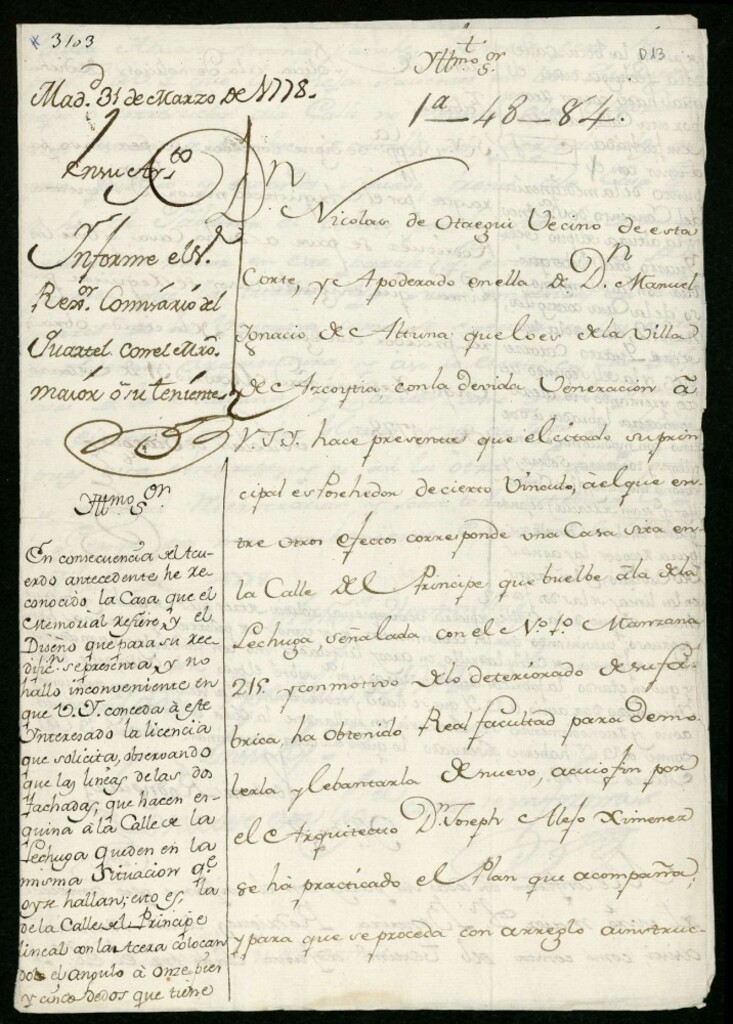 x 3103
D13
Yttmo. Sor.
1a - 48 - 84.
Madd. 31 de Marzo de 1778.
en su Ayto
Ynforme el Sr.
Rexor. Comisario del
Quartel con el Mro.
maior ó su teniente
Dn. Nicolas de Otaegui Vecino de esta
Corte, y Apoderado en ella de Dn. Manuel
Ignacio de Altuna que lo es de la Villa
de Azcoytia con la devida Veneracion â
V.S.Y. hace presente que el citado su prin
cipal es Posehedor de cierto Vinculo, â el que en-
tre otros efectos corresponde una Casa sita en
la Calle del Principe que buelbe âla de la
Lechuga señalada con el No. 1o. Manzana
215. y con motivo delo deteriorado de su fa-
brica, ha obtenido Real facultad para demo-
lerla y lebantarla de nuevo, acuio fin por
el Arquitecto Dn. Joseph Alejo Ximenez
se há practicado el Plan que acompaña;
y para que se proceda con arreglo ainstruc-
Yttmo. Sor.
En consecuencia del Acu-
erdo antecedente he re-
conocido la Casa que el
Memorial refiere, y el
Diseño que para su ree-
difion. se presenta, y no
hallo inconveniente en
que V.Y. conceda à este
Interesado la licencia
que solicita, observando
que las lineas de las dos
fachadas, que hacen es-
quina à la Calle de la
Lechuga queden en la
misma situacion qe.
oy se hallan; esto es, la
de la Calle del Principe
lineal con la Acera colocan
dose el angulo à onze pies
y cinco dedos que tiene